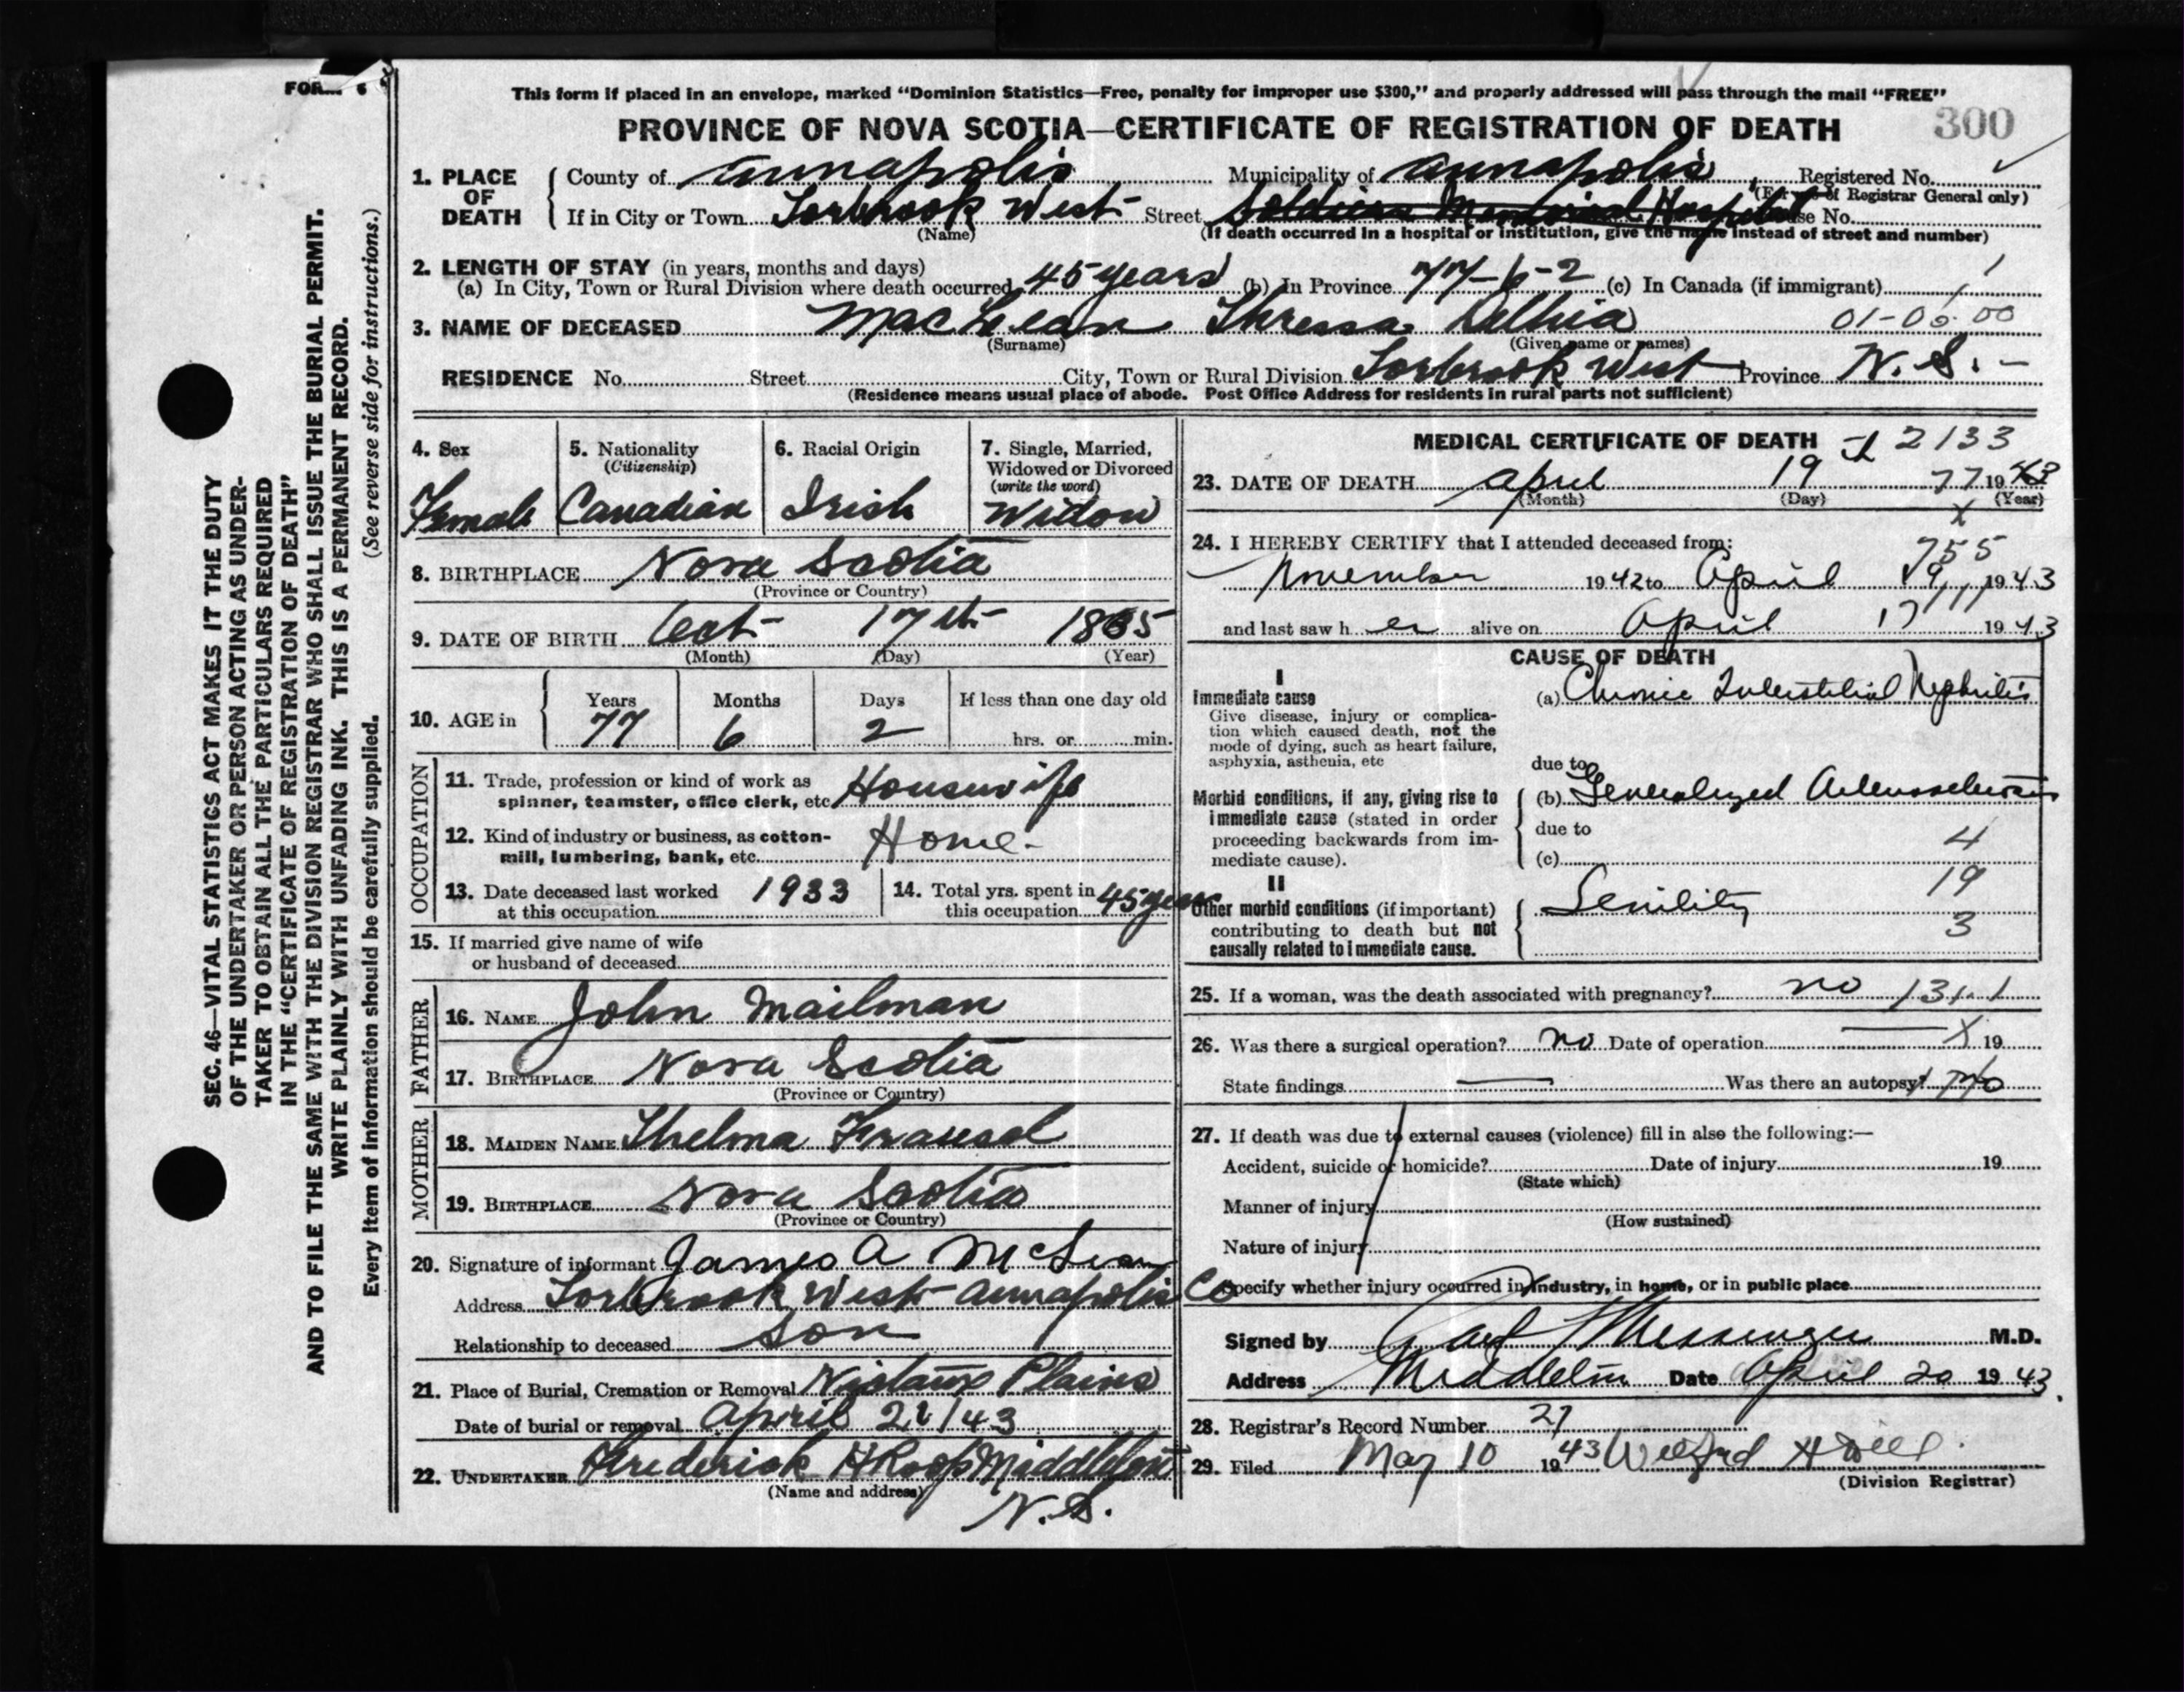 FORM 6
This form if placed in an envelope, marked “Dominion Statistics—Free, penalty for improper use $300,” and properly addressed will pass through the mail “FREE”
PROVINCE OF NOVA SCOTIA—CERTIFICATE OF REGISTRATION OF DEATH 300
1. PLACE OF DEATH County of Annapolis Municipality of Annapolis Registered No.
(For use of Registrar General only)
If in City or Town Torbrook West Street Soldiers Memorial Hospital House No.
(Name) (If death occurred in a hospital or institution, give the name instead of street and number)
2. LENGTH OF STAY (in years, months and days)
(a) In City, Town or Rural Division where death occurred 45 years (b) In Province 77-6-2 (c) In Canada (if immigrant)
3. NAME OF DECEASED MacLean Thressa Delhia 01-05-00
(Surname) (Given name or names)
RESIDENCE No. Street City, Town or Rural Division Torbrook West Province N.S.-
(Residence means usual place of abode. Post Office Address for residents in rural parts not sufficient)
4. Sex 5. Nationality (Citizenship) 6. Racial Origin 7. Single, Married, Widowed or Divorced (write the word)
Female Canadian Irish Widow
8. BIRTHPLACE Nova Scotia
(Province or Country)
9. DATE OF BIRTH Oct- 17th 1865
(Month) (Day) (Year)
10. AGE in Years Months Days If less than one day old
77 6 2 hrs. or min.
OCCUPATION
11. Trade, profession or kind of work as spinner, teamster, office clerk, etc. Housewife
12. Kind of industry or business, as cotton-mill, lumbering, bank, etc. Home-
13. Date deceased last worked at this occupation 1933 14. Total yrs. spent in this occupation 45 years
15. If married give name of wife
or husband of deceased
FATHER
16. NAME John Mailman
17. BIRTHPLACE Nova Scotia
(Province or Country)
MOTHER
18. MAIDEN NAME Thelma
19. BIRTHPLACE Nova Scotia
(Province or Country)
20. Signature of informant James A McLean
Address Torbrook West Annapolis Co
Relationship to deceased Son
21. Place of Burial, Cremation or Removal Nictaux Plains
Date of burial or removal April 21/43
22. UNDERTAKER Frederick H Roop Middleton
(Name and address)
N.S.
MEDICAL CERTIFICATE OF DEATH 2133
23. DATE OF DEATH April 19 77 1943
(Month) (Day) (Year)
x
24. I HEREBY CERTIFY that I attended deceased from:
755
November 1942 to April 19 1943
and last saw her alive on April 17 1943
CAUSE OF DEATH
I
Immediate cause (a) Chronic Interstitial Nephritis
Give disease, injury or complica-
tion which caused death, not the
mode of dying, such as heart failure,
asphyxia, asthenia, etc
due to
Morbid conditions, if any, giving rise to (b) Generalized Arteriosclerosis
immediate cause (stated in order
proceeding backwards from im-
mediate cause).
due to 4
(c)
II 19
Other morbid conditions (if important) Senility
contributing to death but not 3
causally related to immediate cause.
25. If a woman, was the death associated with pregnancy? no 131.1
26. Was there a surgical operation? no Date of operation — X 19
State findings — Was there an autopsy? No
27. If death was due to external causes (violence) fill in also the following:—
Accident, suicide or homicide? Date of injury 19
(State which)
Manner of injury
(How sustained)
Nature of injury
Specify whether injury occurred in industry, in home, or in public place
Signed by Messenger M.D.
Address Middleton Date April 20 1943.
28. Registrar's Record Number 27
29. Filed May 10 1943
(Division Registrar)
SEC. 46—VITAL STATISTICS ACT MAKES IT THE DUTY
OF THE UNDERTAKER OR PERSON ACTING AS UNDER-
TAKER TO OBTAIN ALL THE PARTICULARS REQUIRED
IN THE “CERTIFICATE OF REGISTRATION OF DEATH”
AND TO FILE THE SAME WITH THE DIVISION REGISTRAR WHO SHALL ISSUE THE BURIAL PERMIT.
WRITE PLAINLY WITH UNFADING INK. THIS IS A PERMANENT RECORD.
Every item of information should be carefully supplied. (See reverse side for instructions.)